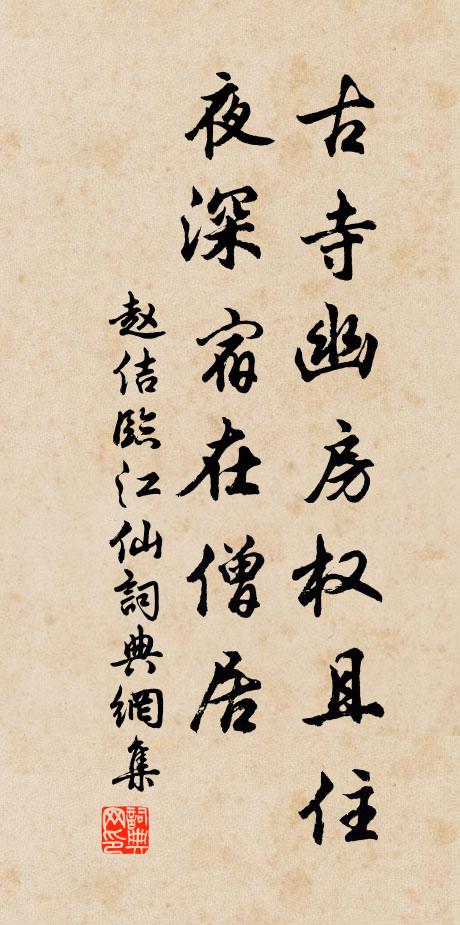 古寺幽房权且住
夜深宿在僧居
赵佶臨江仙詞典網集
詞典网印